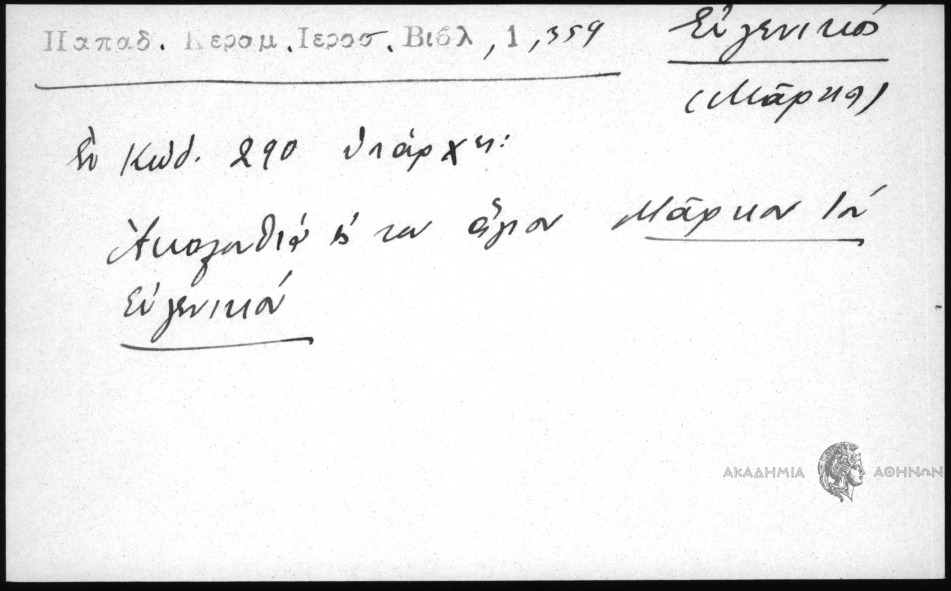 Παπαδ. Κεραμ. Ιεροσ. Βιβλ, 1, 359
Εὐγενικός
(Μᾶρκος)
Ἐν Κώδ. 290 ὑπάρχει:
Ἀκολουθία εἰς τὸν ἅγιον Μᾶρκον τὸν
Εὐγενικόν
ΑΚΑΔΗΜΙΑ ΑΘΗΝΩΝ